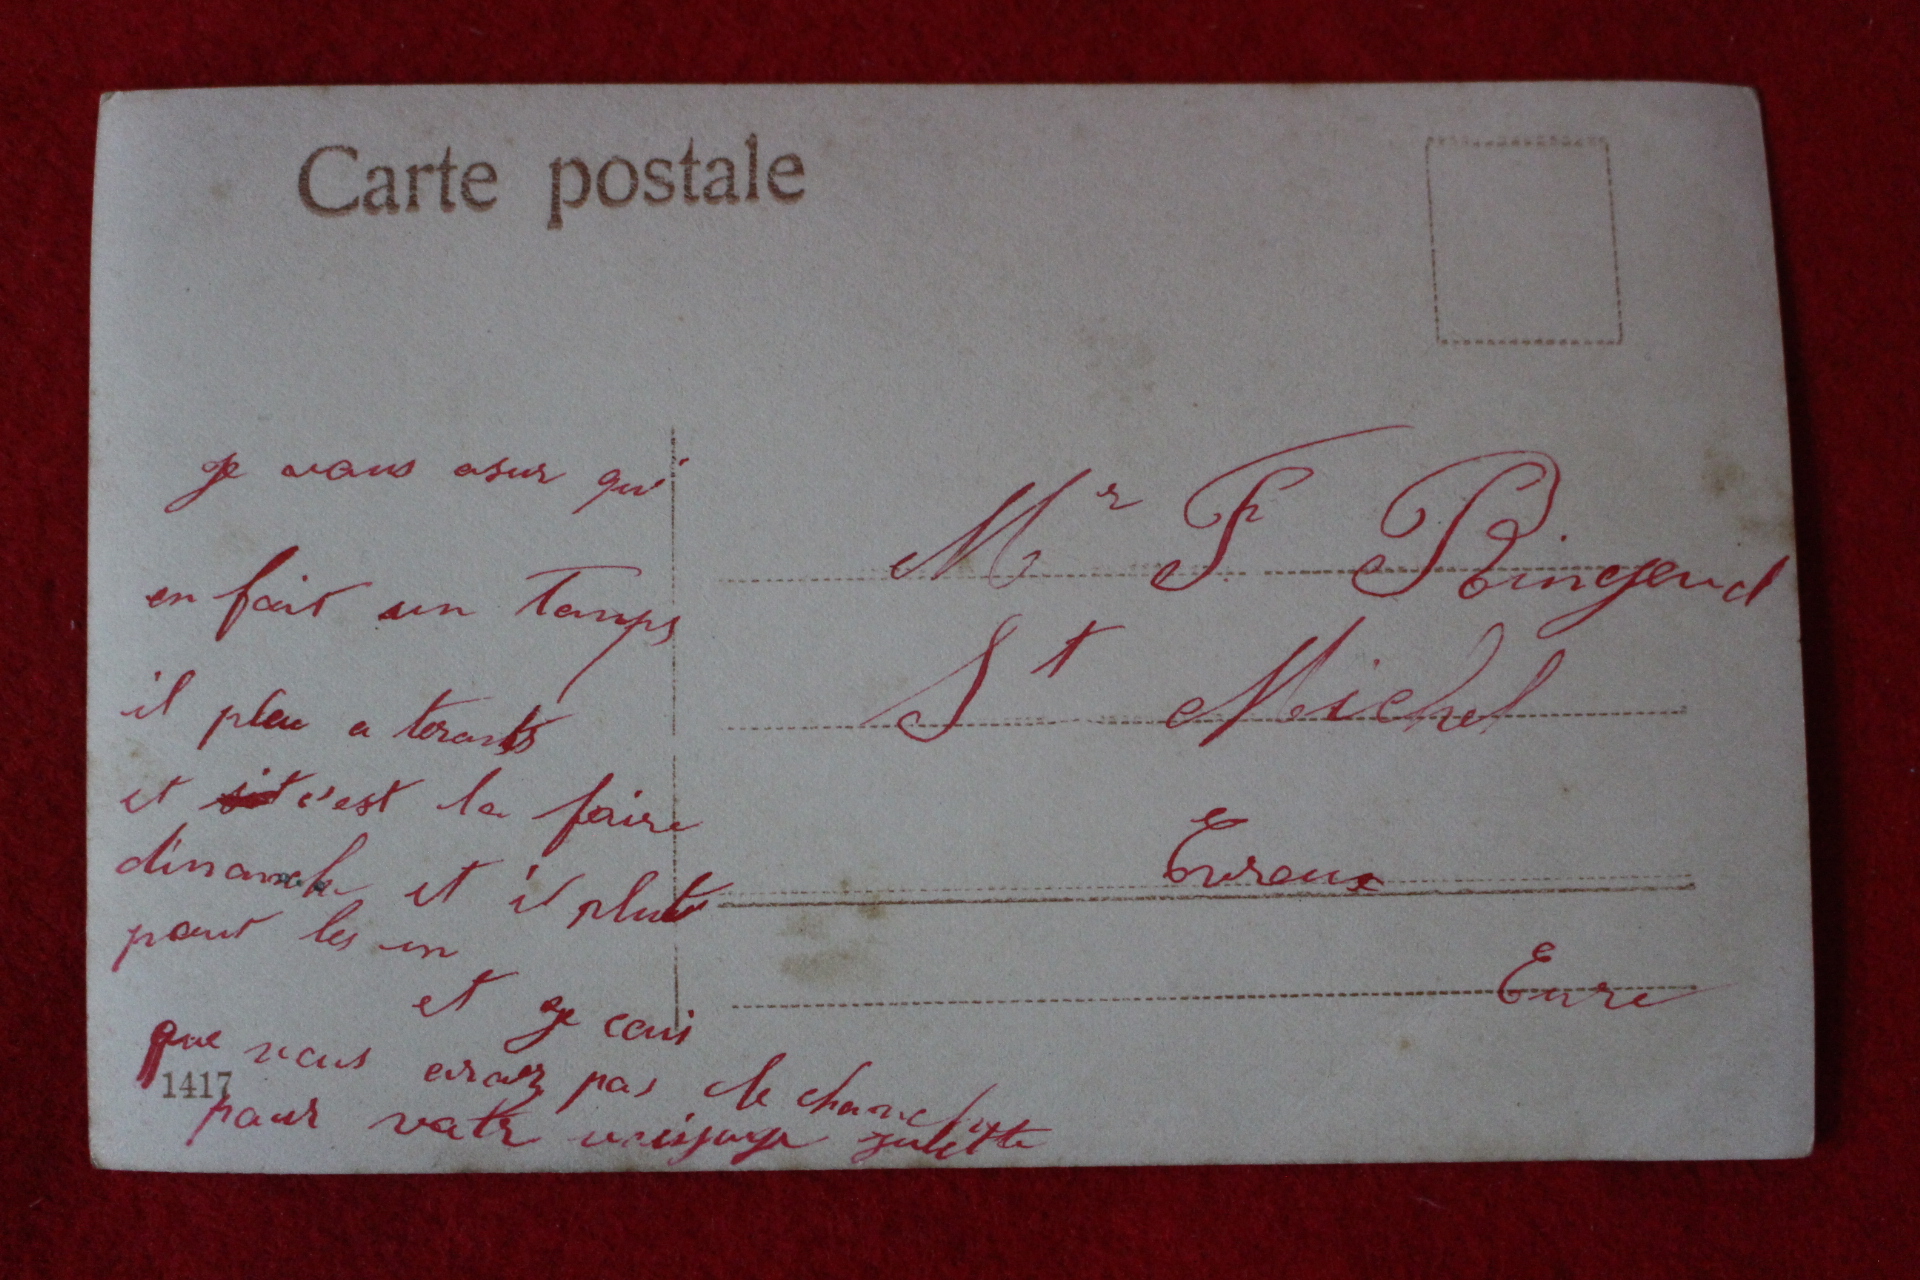 Carte postale
je vous asur qui
en fait un temps
il pleu a torants
et c'est la foire
dimanche et il pleut
pour les un
et je crois
que vous avez pas de chance
pour votr voisjage juliette
1417
Mr F
St Michel
Evreux
Eure